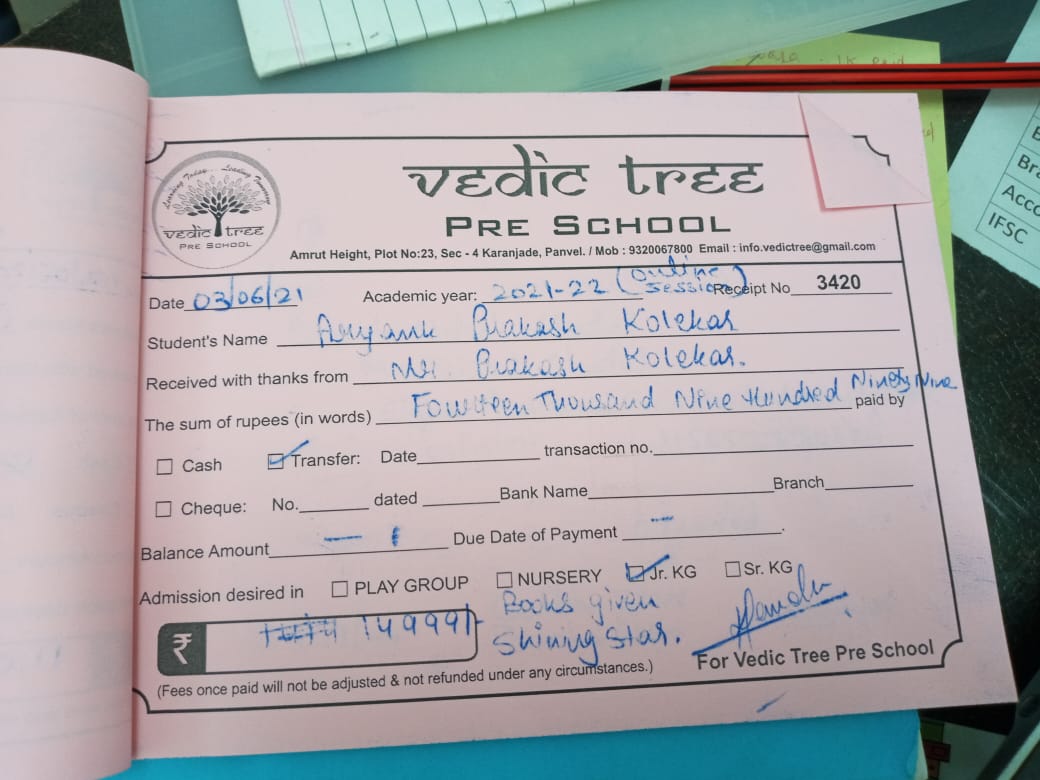 Learning Today... Leading Tomorrow
vedic tree
PRE SCHOOL
vedic tree
PRE SCHOOL
Amrut Height, Plot No:23, Sec - 4 Karanjade, Panvel. / Mob : 9320067800 Email : info.vedictree@gmail.com
Date 03/06/21 Academic year: 2021-22 (online session) Receipt No 3420
Student's Name Aryank Prakash Kolekar
Received with thanks from Mr. Prakash Kolekar.
The sum of rupees (in words) Fourteen Thousand Nine Hundred Ninety Nine paid by
Cash Transfer: Date transaction no.
Cheque: No. dated Bank Name Branch
Balance Amount — Due Date of Payment — .
Admission desired in PLAY GROUP NURSERY Jr. KG Sr. KG
Books given
₹ 14999/- Shining Star.
For Vedic Tree Pre School
(Fees once paid will not be adjusted & not refunded under any circumstances.)
Bra
Acco
IFSC